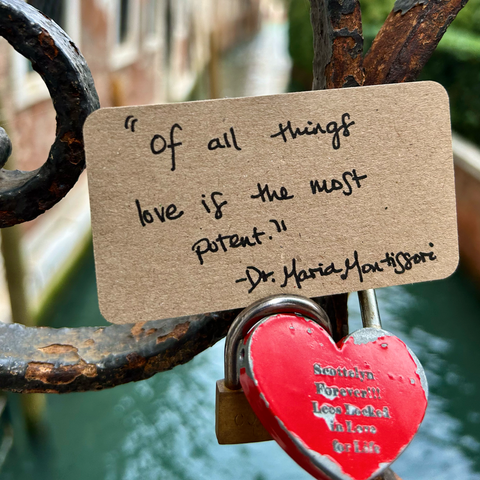 "Of all things
love is the most
potent."
-Dr. Maria Montissori
Scottelyn
Forever!!!
Leos Locked
in Love
for Life